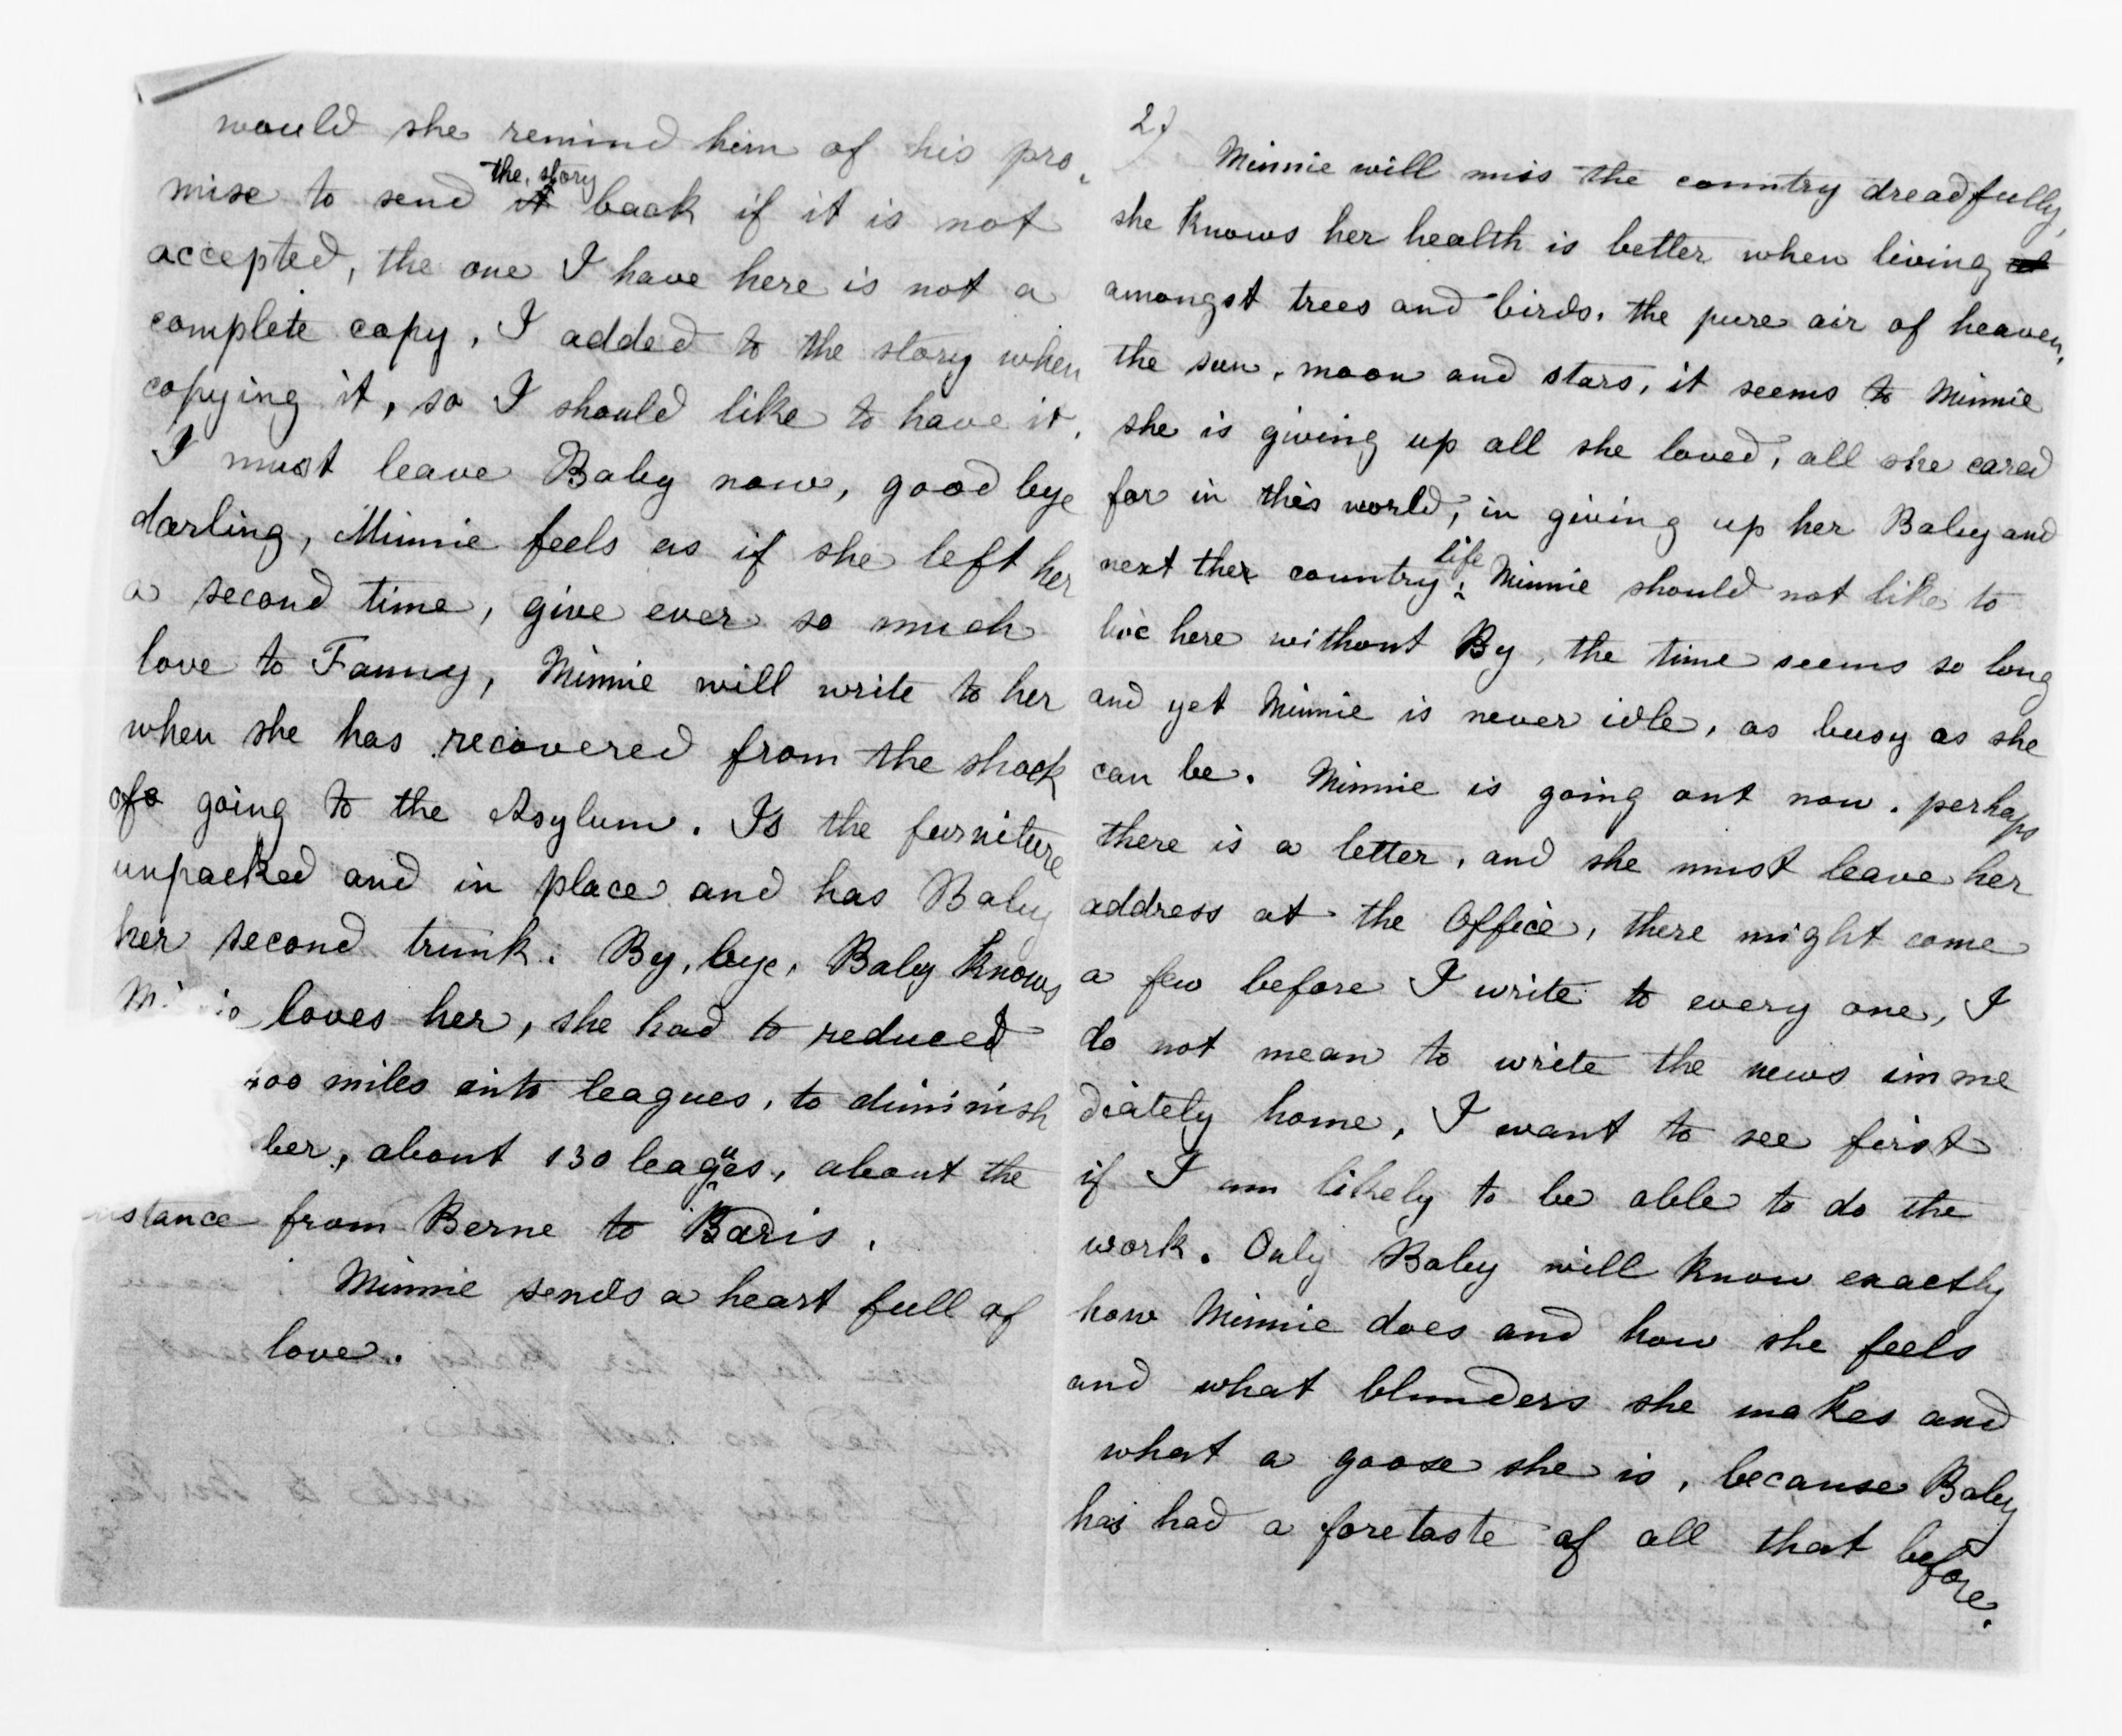 would she remind him of his pro-
mise to send it the story back if it is not
accepted, the one I have here is not a
complete copy, I added to the story when
copying it, so I should like to have it.
I must leave Baby now, good bye
darling, Minnie feels as if she left her
a second time, give ever so much
love to Fanny, Minnie will write to her
when she has recovered from the shock
of going to the Asylum. Is the furniture
unpacked and in place and has Baby
her second trunk. By, bye, Baby knows
loves her, she had to reduced
00 miles into leagues, to diminish
ber, about 130 leagues, about the
istance from Berne to Paris.
Minnie sends a heart full of
love.
2)
Minnie will miss the country dreadfully,
she knows her health is better when living
amongst trees and birds, the pure air of heaven,
the sun, moon and stars, it seems to Minnie
she is giving up all she loved, all she cared
for in this world, in giving up her Baby and
next the country life. Minnie should not like to
live here without By, the time seems so long
and yet Minnie is never idle, as busy as she
can be. Minnie is going out now. perhaps
there is a letter, and she must leave her
address at the Office, there might come
a few before I write to every one, I
do not mean to write the news imme
diately home, I want to see first
if I am likely to be able to do the
work. Only Baby will know exactly
how Minnie does and how she feels
and what blunders she makes and
what a goose she is, because Baby
has had a foretaste of all that before.